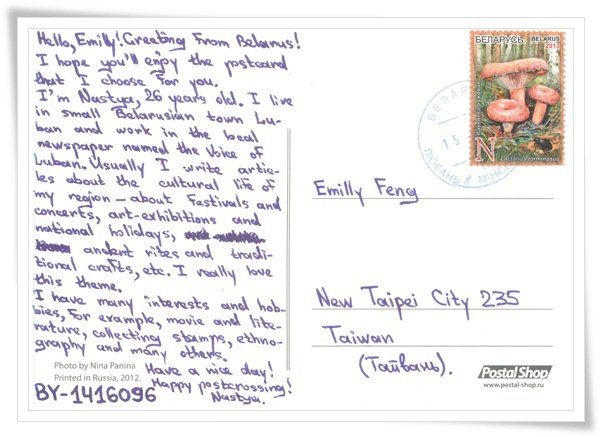 Hello, Emily! Greeting from Belarus!
I hope you'll enjoy the postcard
that I choose for you.
I'm Nastya, 26 years old. I live
in small Belarusian town Lu-
ban and work in the local
newspaper named the Voice of
Luban. Usually I write artic-
les about the cultural life of
my region – about festivals and
concerts, art-exhibitions and
national holidays,
ancient rites and tradi-
tional crafts, etc. I really love
this theme.
I have many interests and hob-
bies, for example, movie and lite-
rature, collecting stamps, ethno-
graphy and many others.
Have a nice day!
Happy postcrossing!
Nastya.
Photo by Nina Panina
Printed in Russia, 2012.
BY-1416096
БЕЛАРУСЬ BELARUS
2013
N
Lactarius torminosus
БЕЛАР
15
ЛЮБАНЬ 2 МІНСК
Emilly Feng
New Taipei City 235
Taiwan
(Тайвань).
Postal Shop
www.postal-shop.ru